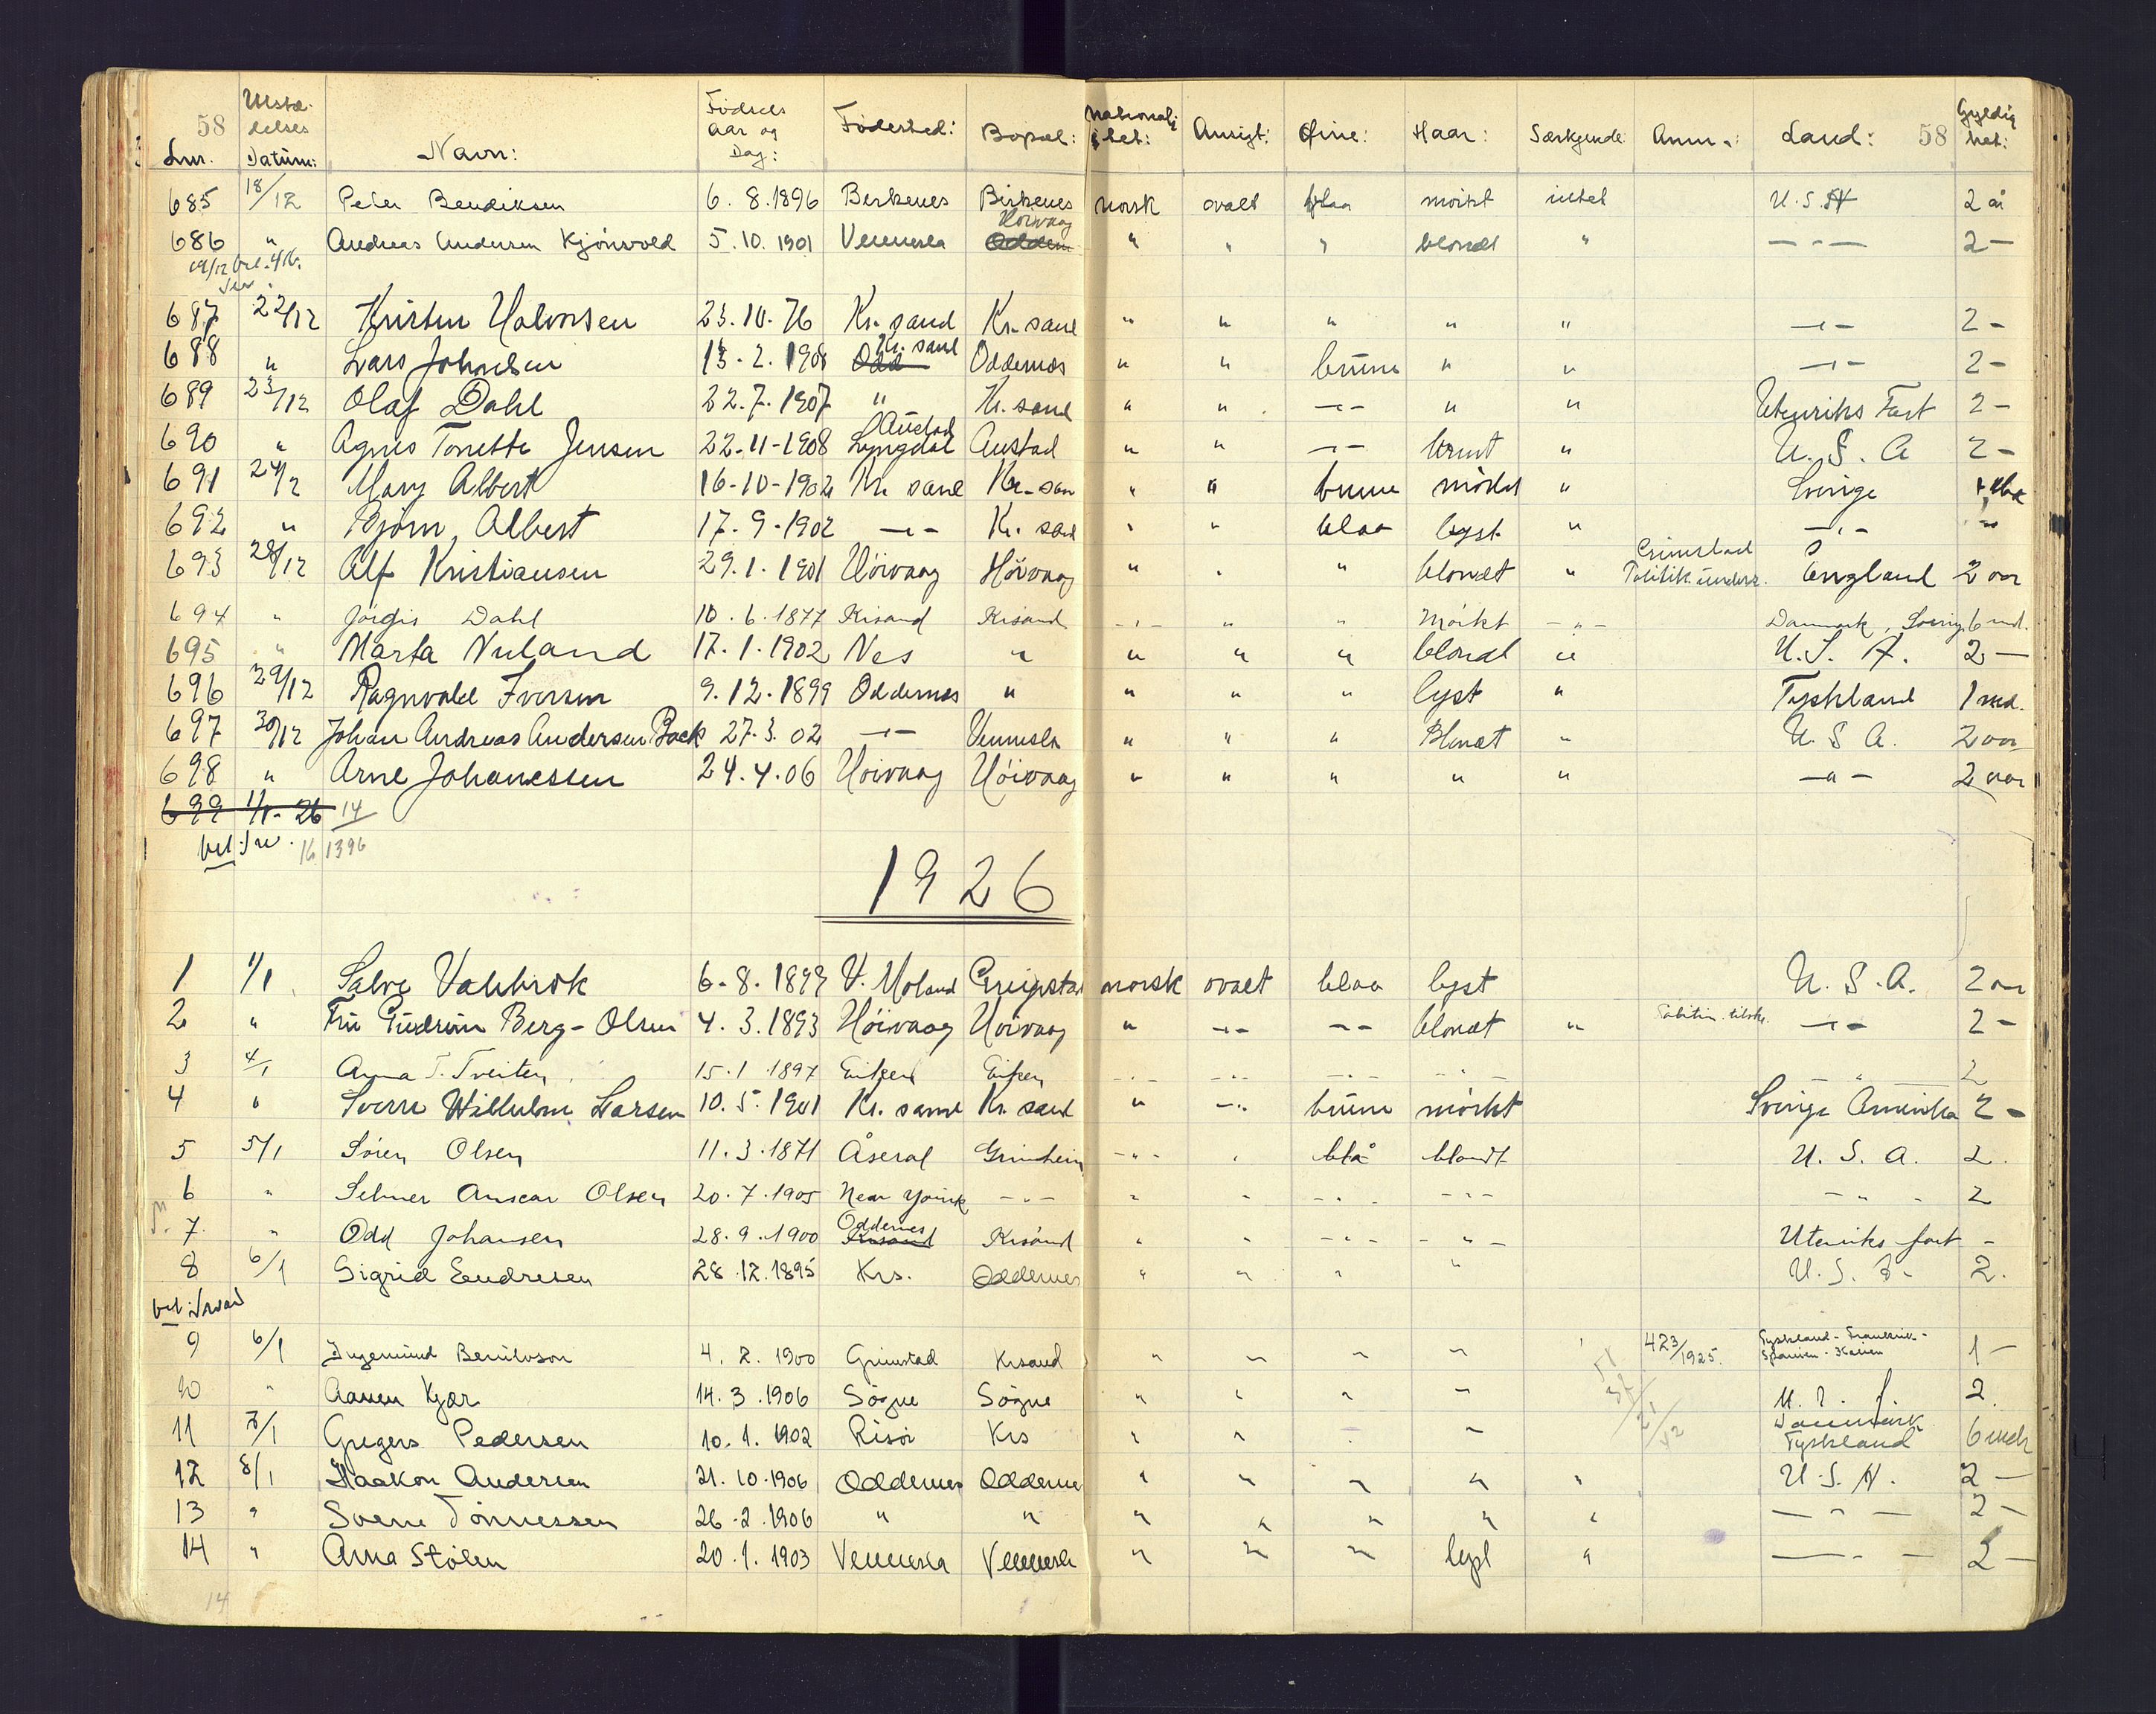 58 Utstæ-
delses
Lnr. Datum: Navn: Fødsels Aar og Dag: Fødested: Bopæl: Nationalitet: Ansigt: Øine: Haar: Særkjende: Anm.: Land: 58 Gyldighet:
685 18/12 Peter Bendiksen 6. 8. 1896 Berkenes Birkenes norsk ovalt blaa mørkt intet U.S.A 2 å
Höivaag
686 " Andreas Andersen Kjönsvold 5. 10. 1901 Vennesla Oddern " " " blondt " — " — 2 —
19/12
687 22/12 Kristen Halvorsen 23. 10. 76 Kr. sand Kr. sand " " " " " — " — 2 -
Kr. sand
688 " Lars Johnsen 13. 2. 1908 Odd Oddernes " " brune " " — " — 2 -
689 23/12 Olaf Dahl 22. 7. 1907 " Kr. sand " " — " — " " Utenriks Fart 2 -
Austad
690 " Agnes Tonette Jensen 22-11-1908 Lyngdal Austad " " — " — brunt " U. S. A 2 -
691 24/12 Mary Albert 16-10-1902 Kr. sand Kr. san " " brune mörkt " Sverige
692 " Björn Albert 17. 9 - 1902 — " — Kr. sand " " blaa lyst " — " — "
Grimstad
693 28/12 Alf Kristiansen 29. 1. 1901 Höivaag Höivaag " " " blondt " Politik England 2 aar
694 " Dahl 10. 6. 1877 Krsand Krsand - " - " " Mörkt - " - Danmark, Sverig. 6 md.
695 " Marta Nuland 17. 1. 1902 Nes " " " " blondt " U. S. A. 2 —
696 29/12 Ragnvald Iversen 9. 12. 1899 Oddernes " " " " lyst " Tyskland 1 md.
697 30/12 Johan Andreas Andersen Back 27. 3. 02 — " — Vennesla " " " Blondt " U. S. A. 2 aar
698 " Arne Johanessen 24. 4. 06 Höivaag Höivaag " " " " " — " — 2 aar
699 1/1 - 26 14
16 1396
1926
1 1/1 Salve 6. 8. 1899 V. Moland Greipstad norsk ovalt blaa lyst U. S. A. 2 aar
2 " Fru Gudrun Berg-Olsen 4. 3. 1893 Höivaag Höivaag " - " - - " - blondt " — " — 2 -
3 4/1 Anna T. Treiten 15. 1. 1897 Eiken Eiken - " - - " - - " - - " - — " — 2
4 " Sverre Wilhelm Larsen 10. 5. 1901 Kr. sand Kr. sand " - " - brune mörkt Sverige Amerika 2 -
5 5/1 Sören Olsen 11. 3. 1871 Åseral Grindheim - " - " blå blondt U. S. A. 2.
6 " Selmer Anscar Olsen 20. 7. 1905 New Yourk - " - " " - " - - " - - " - 2
Oddernes
7. " Odd Johansen 28. 9. 1900 Krisand Krsand " " - " - - " - Utenriks fart -
8 6/1 Sigrid Endresen 28. 12. 1895 Krs. Oddernes " " " " U. S. A. 2.
9 6/1 Ingemund 4. 2. 1900 Grimstad Krsand " " " " " 423/1925. Tyskland - Frankrik -
Spanien - Italien 1 —
10 " Aanen Kjær 14. 3. 1906 Sögne Sögne " " " " 2.
11 7/1 Gregers Pedersen 10. 1. 1902 Risör Krs " " " " Danmark
Tyskland 6 mdr
12 8/1 Haakon Andersen 21. 10. 1906 Oddernes Oddernes " " " " " U. S. A. 2 —
13 " Sverre Tönnessen 26. 2. 1906 " " " " " " " — " — 2 —
14 " Anna Stölen 20. 1. 1903 Vennesla Vennesla " " " lyst " — " — 2 —
14